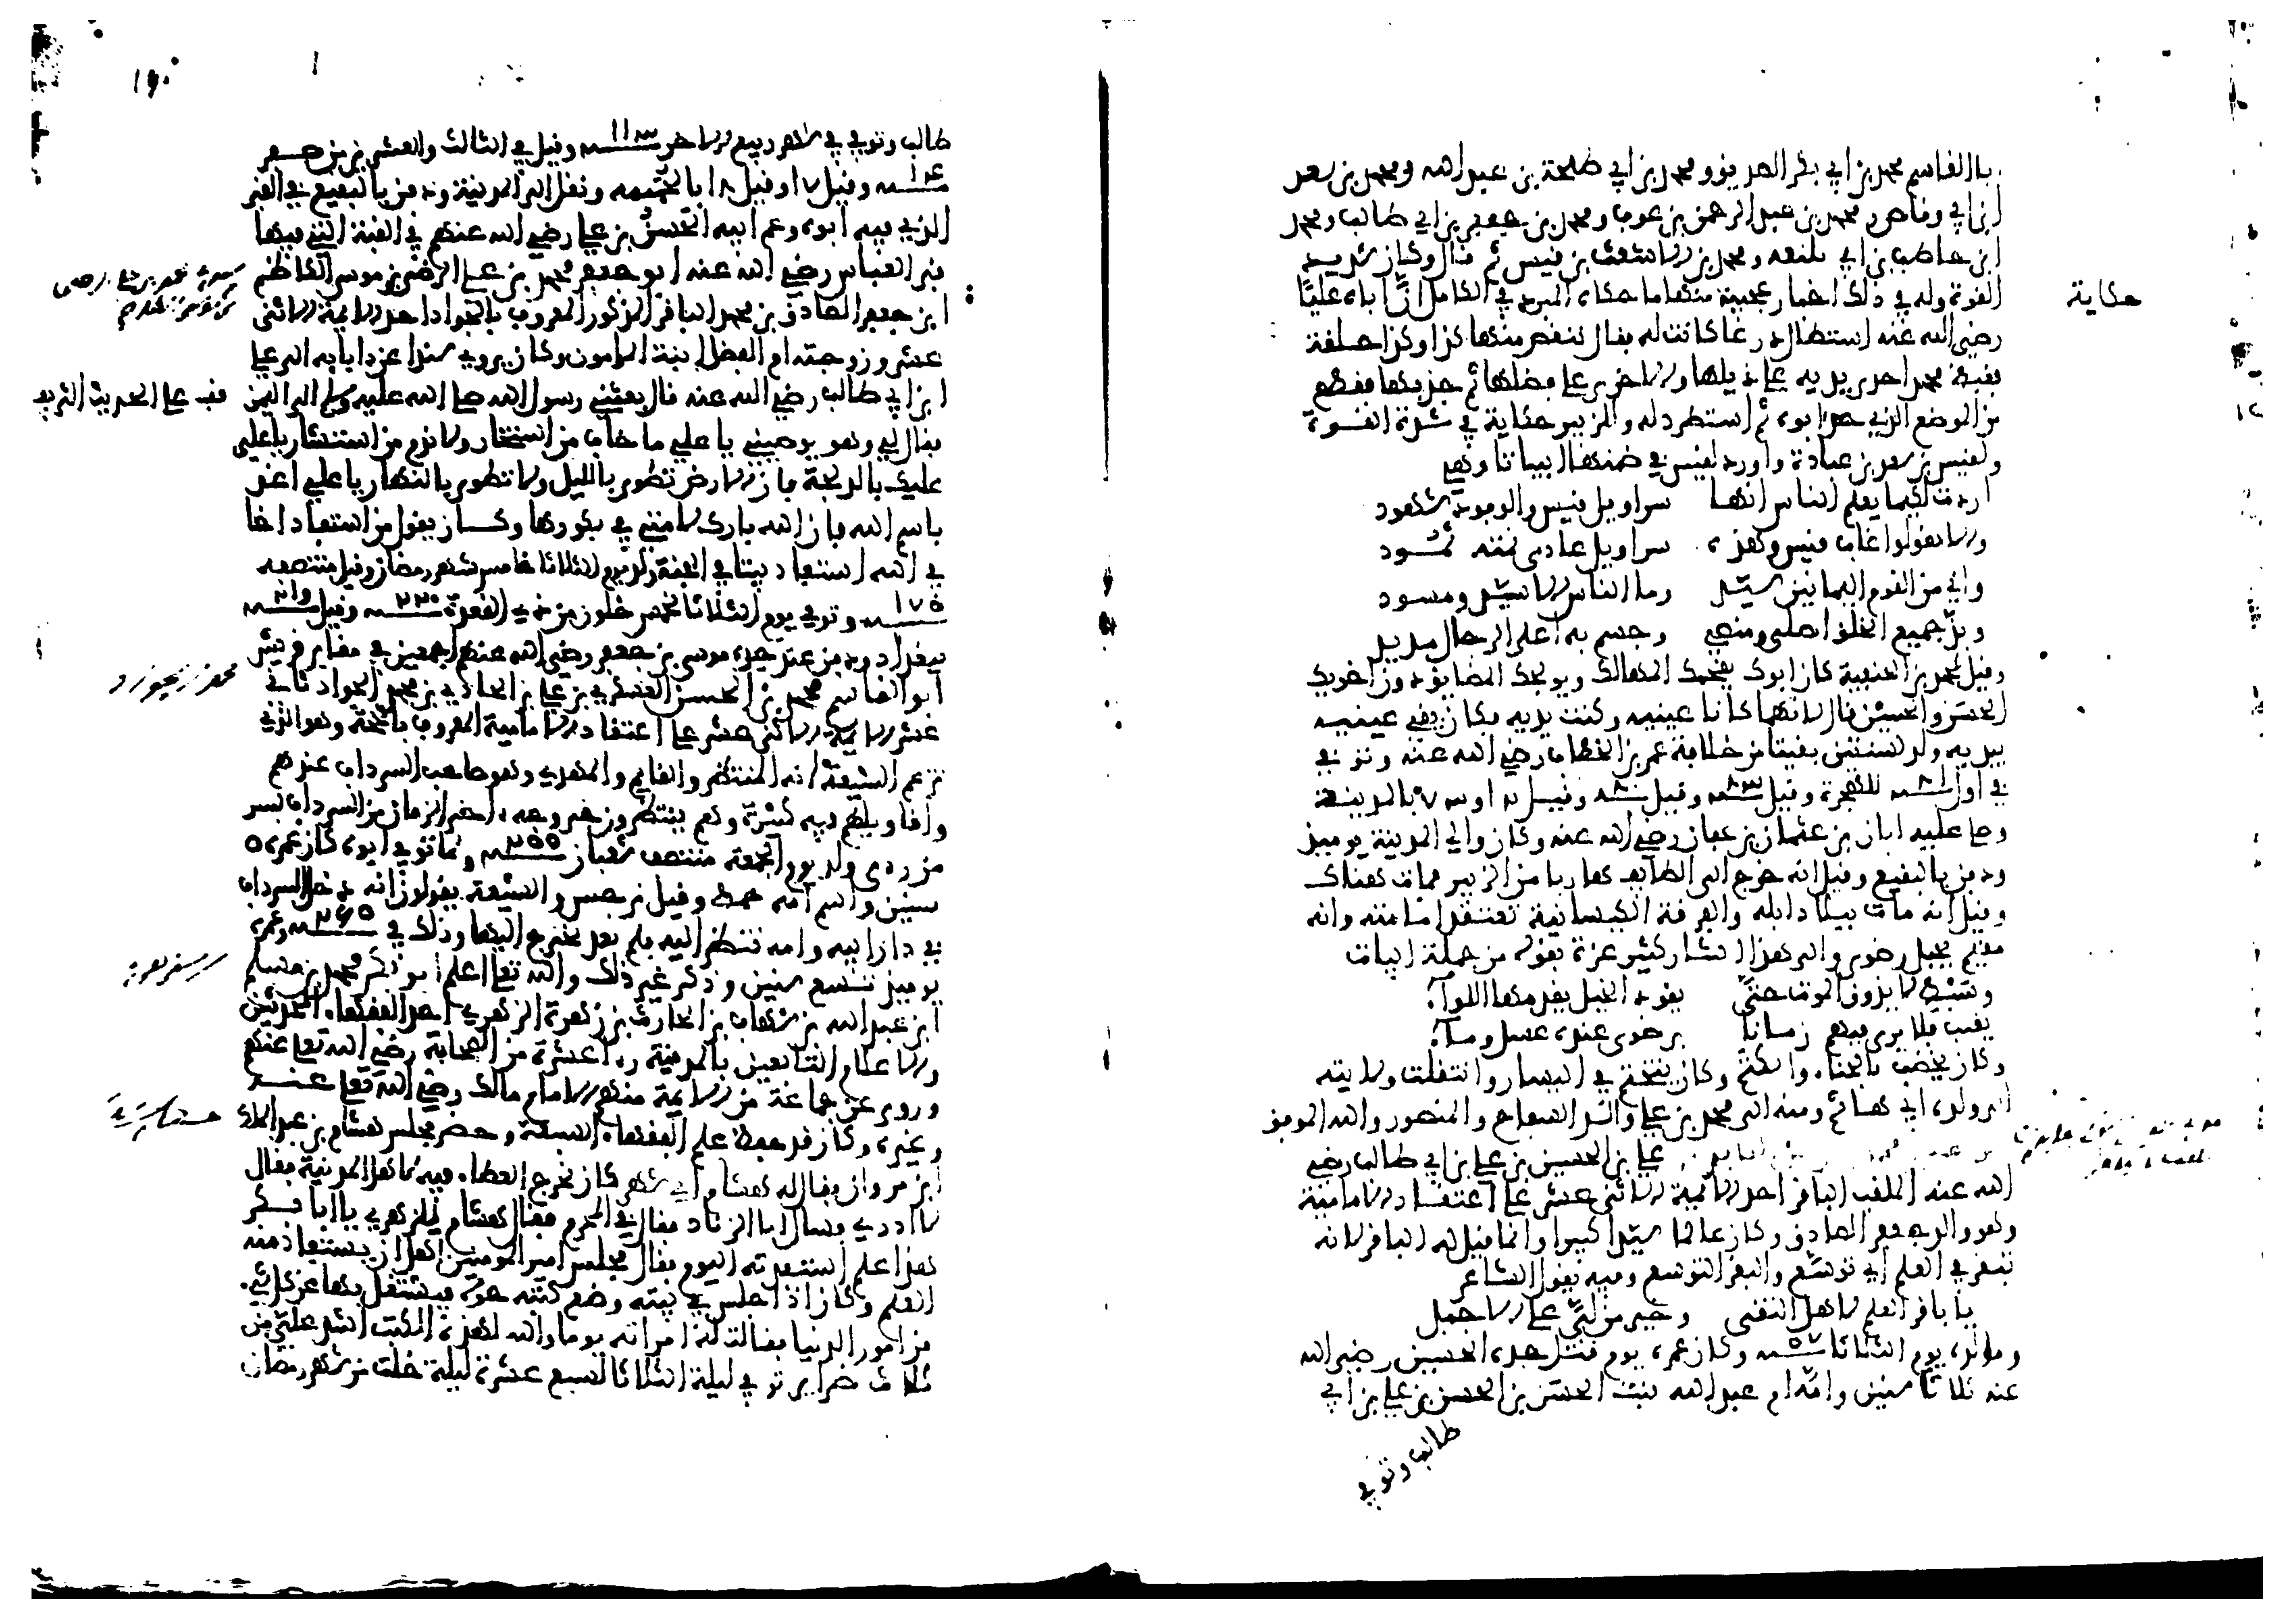 بالقاسم محمد بن ابي بكر الصديق ومحمد بن ابي طلحة بن عبد الله ومحمد بن سعد
ابن ابي وقاص ومحمد بن عبد الرحمن بن عوف ومحمد بن جعفر بن ابي طالب ومحمد
ابن حاطب بن ابي بلتعه ومحمد بن الاشعث بن قيس ثم قال وكان شديد
القوة وله في ذلك اخبار عجيبة منها ما حكاه المبرد في الكامل ان اباه عليا
حكاية
رضي الله عنه استطال درعا كانت له فقال لتنقص منها كذا وكذا حلقة
فقبض محمد احدى يديه على ذيلها والاخرى على فضلها ثم جذبها فقطع
من الموضع الذي حد ابوه ثم استطرد له والزبير حكاية في شدة القوة
ولقيس بن سعد بن عبادة واورد لقيس في ضمنها ابياتا وهي
اردت لكيما يعلم الناس انها سراويل قيس والوفود شهود
والا يقولوا غاب قيس وهذه سراويل عادى نمته ثمود
واني من القوم اليمانين سيد وما الناس الا سيد ومسود
وبز جميع الخلق اصلي ومنصبي وجسم به اعلو الرجال مديد
وقيل لمحمد بن الحنفية كان ابوك يقحمك المهالك ويولجك المضايق دون اخويك
الحسن والحسين قال لانهما كانا عينيه وكنت يديه فكان يقي عينيه
بيديه ولد لسنتين بقيتا من خلافة عمر بن الخطاب رضي الله عنه وتوفي
في اول سنة ٨١ للهجرة وقيل سنة ٨٣ وقيل سنة ٨٠ وقيل ٢ او ٧٣ بالمدينة
وصلى عليه ابان بن عثمان بن عفان رضي الله عنه وكان والي المدينة يوميذ
ودفن بالبقيع وقيل انه خرج الى الطايف هاربا من الزبير فمات هناك
وقيل انه مات ببلاد ايله والفرقة الكيسانية تعتقد امامته وانه
مقيم بجبل رضوى والى هذا اشار كثير عزة بقوله من جملة ابيات
وسبط لا يذوق الموت حتى يقود الخيل يقدمها اللواء
يغيب فلا يرى فيهم زمانا برضوى عنده عسل وماء
وكان يخضب بالحناء والكتم وكان يتختم في اليسار وانتقلت ولايته
الى ولده ابي هاشم ومنه الى محمد بن علي والد السفاح والمنصور والله الموفق
علي بن الحسين بن علي بن ابي طالب رضي
الله عنه الملقب الباقر احد الائمة الاثني عشر على اعتقاد الامامية
وهو والد جعفر الصادق وكان عالما سيدا كبيرا وانما قيل له الباقر لانه
تبقر في العلم اي توسع والبقر التوسع وفيه يقول الشاعر
يا باقر العلم لاهل التقى وخير من لبى على الاجبل
ومولده يوم الثلاثاء سنة ٥٧ وكان عمره يوم قتل جده الحسين رضي الله
عنه ثلاث سنين وامه ام عبد الله بنت الحسن بن الحسن بن علي بن ابي
طالب وتوفي
١٩٠
طالب وتوفي في شهر ربيع الاخر سنة ١١٣ وقيل في الثالث والعشرين من صفر
سنة ١١٤ وقيل ١٧ وقيل ١٨ بالحميمه ونقل الى المدينة ودفن بالبقيع في القبر
الذي فيه ابوه وعم ابيه الحسن بن علي رضي الله عنهم في القبة التي فيها
قبر العباس رضي الله عنه ابو جعفر محمد بن علي الرضى بن موسى الكاظم
ابن جعفر الصادق بن محمد الباقر المذكور المعروف بالجواد احد الائمة الاثني
عشر وزوجته ام الفضل ابنة المامون وكان يروي مسندا عن ابايه الى علي
ابن ابي طالب رضي الله عنه قال بعثني رسول الله صلى الله عليه وسلم الى اليمن
قف على الحديث الشريف
فقال لي وهو يوصيني يا علي ما خاب من استخار ولا ندم من استشار يا علي
عليك بالدلجة فان الارض تطوى بالليل ولا تطوى بالنهار يا علي اغد
باسم الله فان الله بارك لامتي في بكورها وكان يقول من استفاد اخا
في الله استفاد بيتا في الجنة ولد يوم الثلاثا خامس شهر رمضان وقيل منتصفه
سنة ١٧٥ وتوفي يوم الثلاثا لخمس خلون من ذي القعدة سنة ٢٢٠ وقيل
ببغداد ودفن عند جده موسى بن جعفر رضي الله عنهم اجمعين في مقابر قريش
ابو القاسم محمد بن الحسن العسكري بن علي بن الهادي بن محمد الجواد ثاني
عشر الائمة الاثني عشر على اعتقاد الامامية المعروف بالحجة وهو الذي
تزعم الشيعة انه المنتظر والقايم والمهدي وهو صاحب السرداب عندهم
واقاويلهم فيه كثيرة وهم ينتظرون خروجه اخر الزمان من السرداب بسر
من رءى ولد يوم الجمعة منتصف شعبان سنة ٢٥٥ ولما توفي ابوه كان عمره ٥
سنين واسم امه خمط وقيل نرجس والشيعة يقولون انه دخل السرداب
في دار ابيه وامه تنتظر اليه فلم يعد يخرج اليها وذلك في سنة ٢٦٥ وعمره
يوميذ تسع سنين وذكر غير ذلك والله تعالى اعلم ابو بكر محمد بن مسلم
ابن عبيد الله بن شهاب بن الحارث بن زهرة الزهري احد الفقهاء المحدثين
والاعلام التابعين بالمدينة راى عشرة من الصحابة رضي الله تعالى عنهم
وروى عن جماعة من الائمة منهم الامام مالك رضي الله تعالى عنه
وغيره وكان قد حفظ علم الفقهاء السبعة وحضر مجلس هشام بن عبد الملك
ابن مروان فقال له هشام اي شهر كان يخرج العطاء فيه لاهل المدينة فقال
لا ادري فسال ابا الزناد فقال في المحرم فقال هشام للزهري يا ابا بكر
هذا علم استفدته اليوم فقال مجلس امير المومنين اهل ان يستفاد منه
العلم وكان اذا جلس في بيته وضع كتبه حوله فيشتغل بها عن كل شيء
من امور الدنيا فقالت له امراته يوما والله لهذه الكتب اشد علي من
ثلاث ضراير توفي ليلة الثلاثا لسبع عشرة ليلة خلت من شهر رمضان